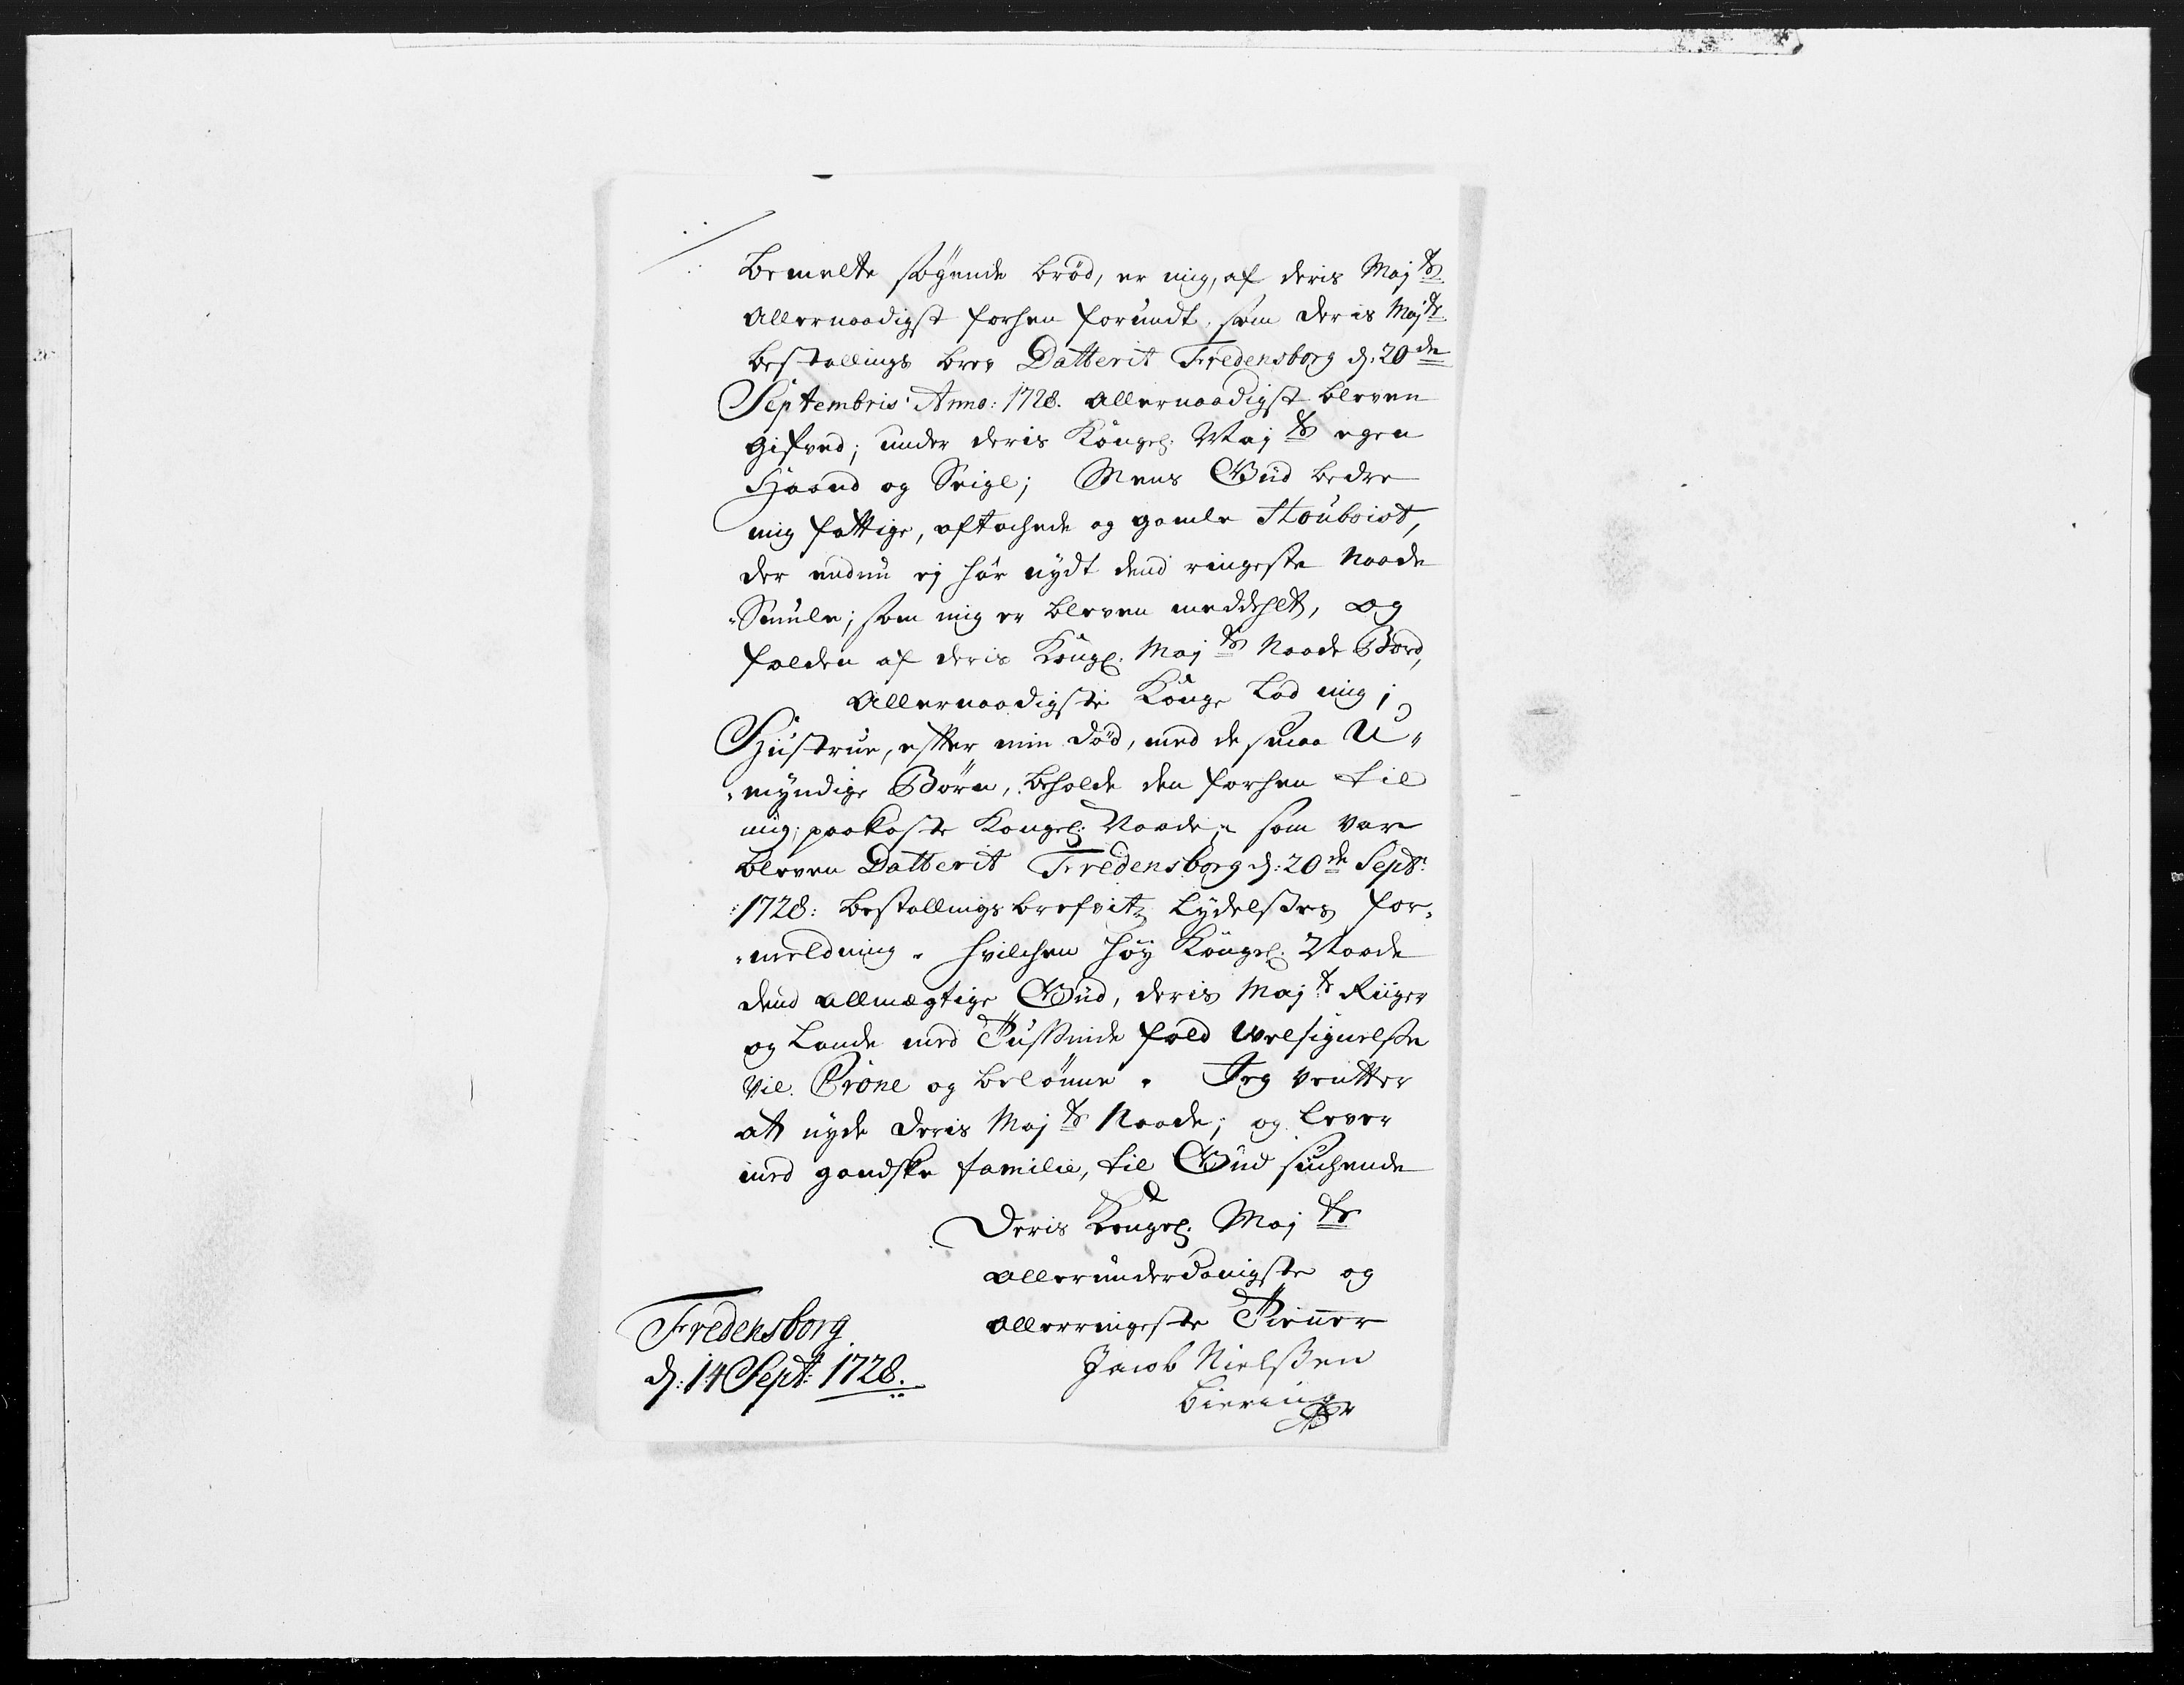 Bemelte søgende brød, er mig, af deris Maj:ts
Allernaadigst forhen forundt. som deris Majts
bestallings brev Datterit Fredensborg d: 20de
Septembris Anno: 1728. allernaadigst bleven
gifved; under deris Kongel: Maj ts egen
Haand og Seigl; Mens Gud bedre
mig fattige, aftachede og gamle Houboist,
der endnu ej har nydt dend ringeste Naade
Smule; som mig er bleven meddehlt, og
falden af deris Kongl: Maj ts Naade Bord,
Allernaadigste Konge Lad min
Hustrue, efter min død, med de smaa U„
„myndige Børn, beholde den forhen til
mig paakaste Kongel: Naade, som var
bleven Datterit Fredensborg d: 20de Septr:
1728: bestallingsbrefvitz Lydelsses for„
„meldning. hvilchen høy Kongel: Naade
dend allmægtige Gud, deris Maj:ts Riiger
og Lande med Tussinde fold velsignelsse
vil Crone og belønne. Jeg venter
at nyde deris Maj ts Naade; og lever
med gandske familie, til Gud suchende
Deris Kongel: Maj ts
allerunderdanigste og
allerringeste Tienner
Jacob Nielssen
Biering
Fredensborg
d: 14 Sept: 1728.